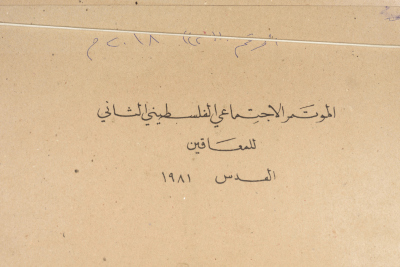 المؤتمر الاجتماعي الفلسطيني الثاني
للمعاقين
القدس ١٩٨١